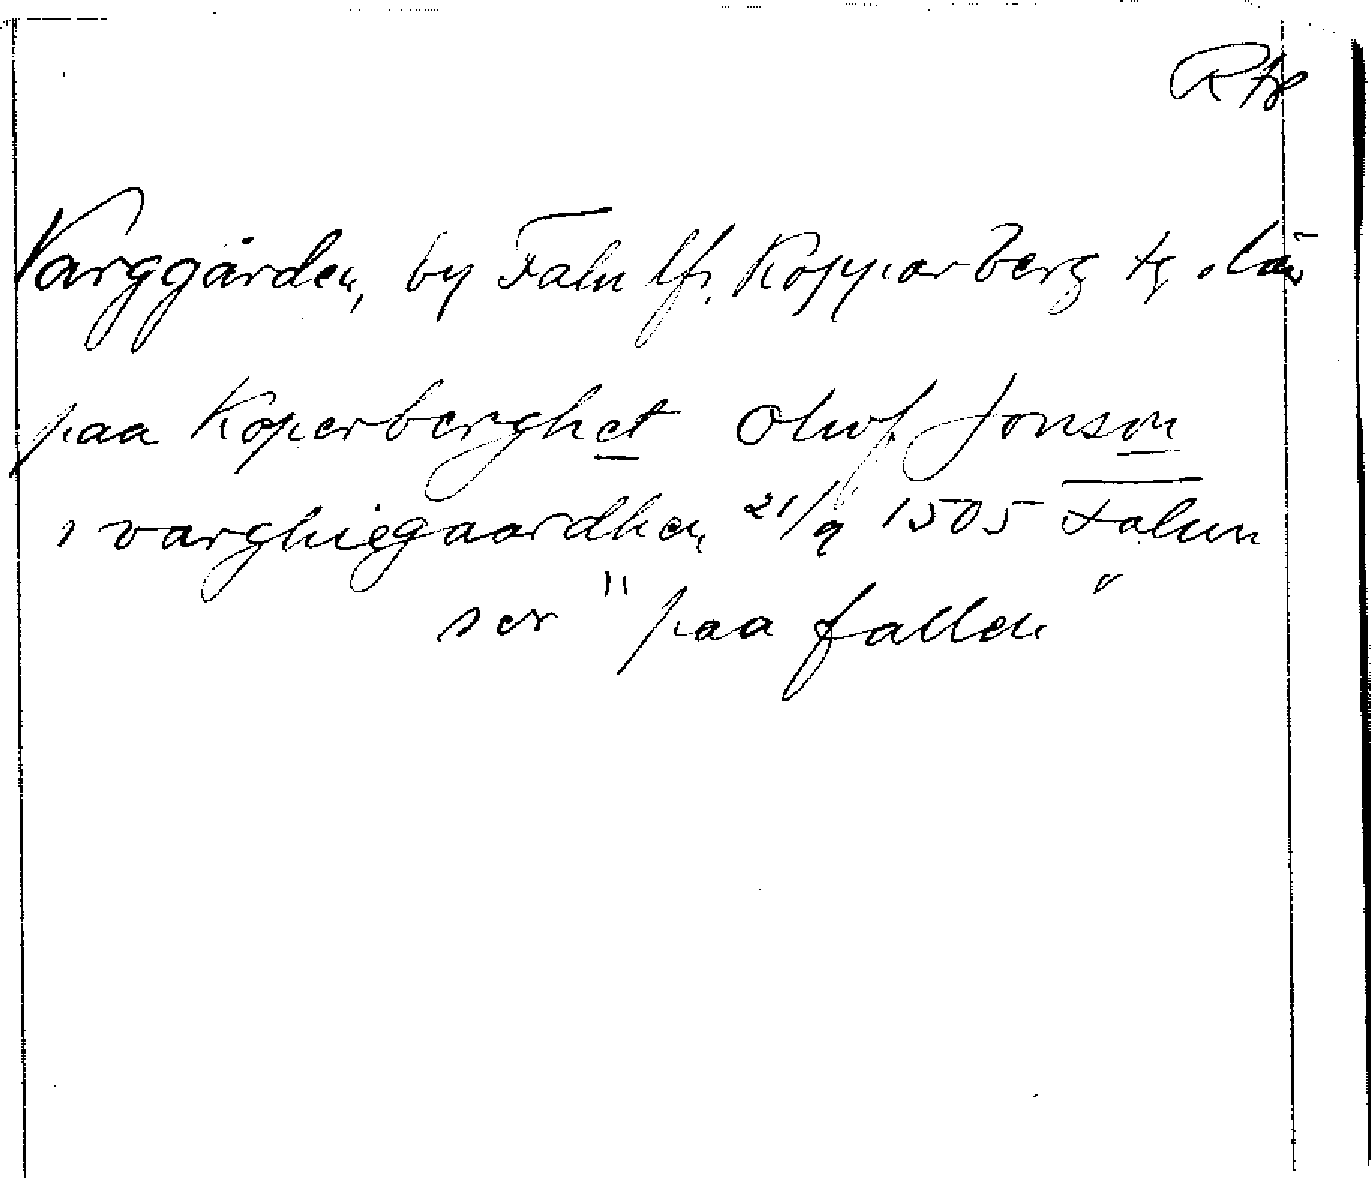 Varggården, by Falu lfs. Kopparberg tg o. län
paa Koperberghet Oluf Jonson
i varghiegaardhen 21/9 1505 Falun
ser "paa fallen"